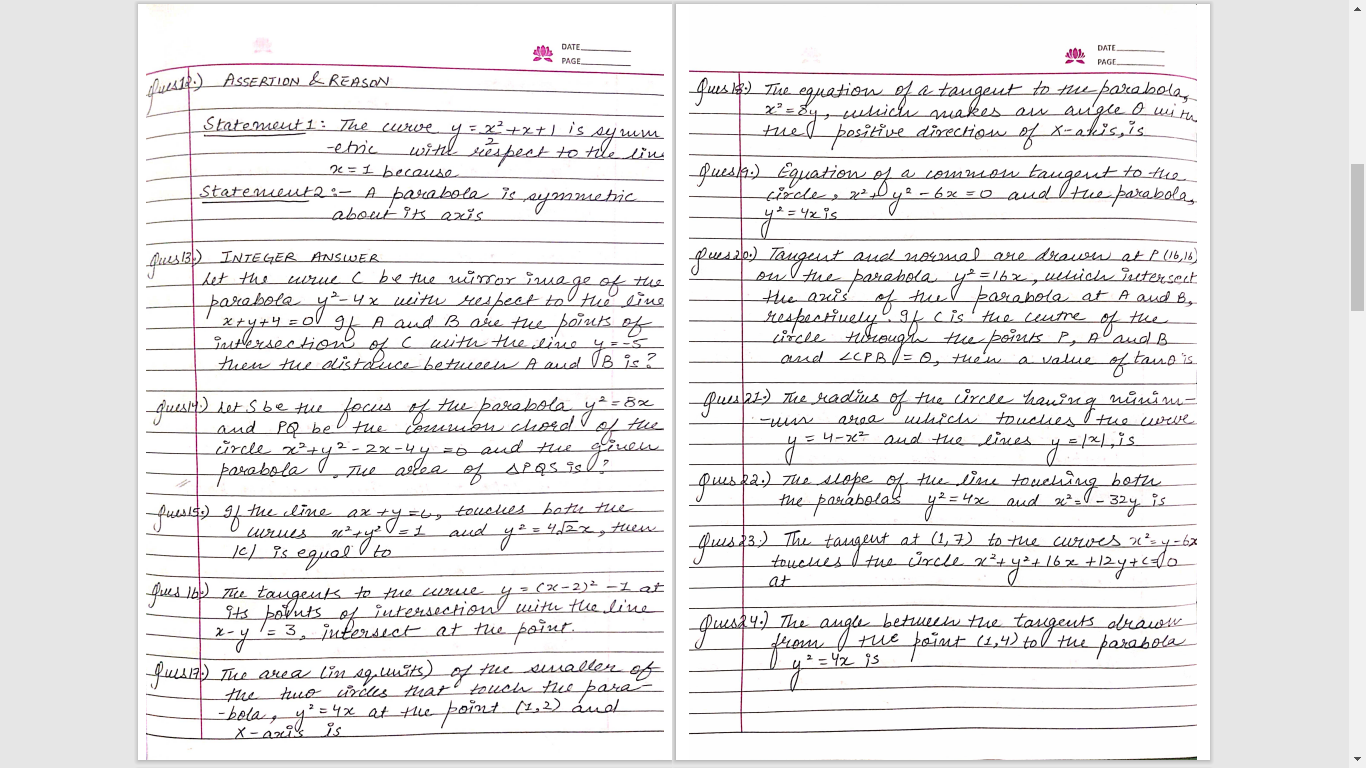 DATE
PAGE
Ques12.) ASSERTION & REASON
Statement1: The curve y = x²/2 + x + 1 is symm
-etric with respect to the line
x = 1 because
Statement2:- A parabola is symmetric
about its axis
Ques13.) INTEGER ANSWER
Let the curve C be the mirror image of the
parabola y² - 4x with respect to the line
x+y+4=0 If A and B are the points of
intersection of C with the line y = -5
then the distance between A and B is?
Ques14.) Let S be the focus of the parabola y² = 8x
and PQ be the common chord of the
circle x²+y²-2x-4y=0 and the given
parabola. The area of ΔPQS is?
Ques15.) If the line ax+y=c, touches both the
curves x²+y²=1 and y²=4√2x, then
|c| is equal to
Ques16.) The tangents to the curve y = (x-2)² - 1 at
its points of intersection with the line
x-y = 3, intersect at the point.
Ques17.) The area (in sq.units) of the smaller of
the two circles that touch the para-
-bola, y²=4x at the point (1,2) and
X-axis is
DATE
PAGE
Ques18.) The equation of a tangent to the parabola,
x²=8y, which makes an angle θ with
the positive direction of X-axis, is
Ques19.) Equation of a common tangent to the
circle, x²+y²-6x=0 and the parabola,
y²=4x is
Ques20.) Tangent and normal are drawn at P(16,16)
on the parabola y²=16x, which intersect
the axis of the parabola at A and B,
respectively. If C is the centre of the
circle through the points P, A and B
and ∠CPB = θ, then a value of tanθ is
Ques21.) The radius of the circle having minim-
-um area which touches the curve
y = 4-x² and the lines y = |x|, is
Ques22.) The slope of the line touching both
the parabolas y²=4x and x²=-32y is
Ques23.) The tangent at (1,7) to the curves x²=y-6x
touches the circle x²+y²+16x+12y+c=0
at
Ques24.) The angle between the tangents drawn
from the point (1,4) to the parabola
y²=4x is